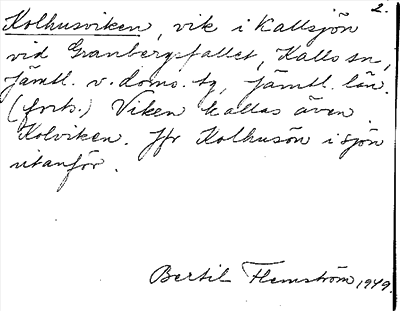 2.
Kolhusviken, vik i Kallsjön
vid Granbergsfallet, Kalls sn,
Jämtl. v. doms. tg, Jämtl. län.
(forts.) Viken kallas även
Kolviken. Jfr Kolhusön i sjön
utanför.
Bertil Flemström 1949.